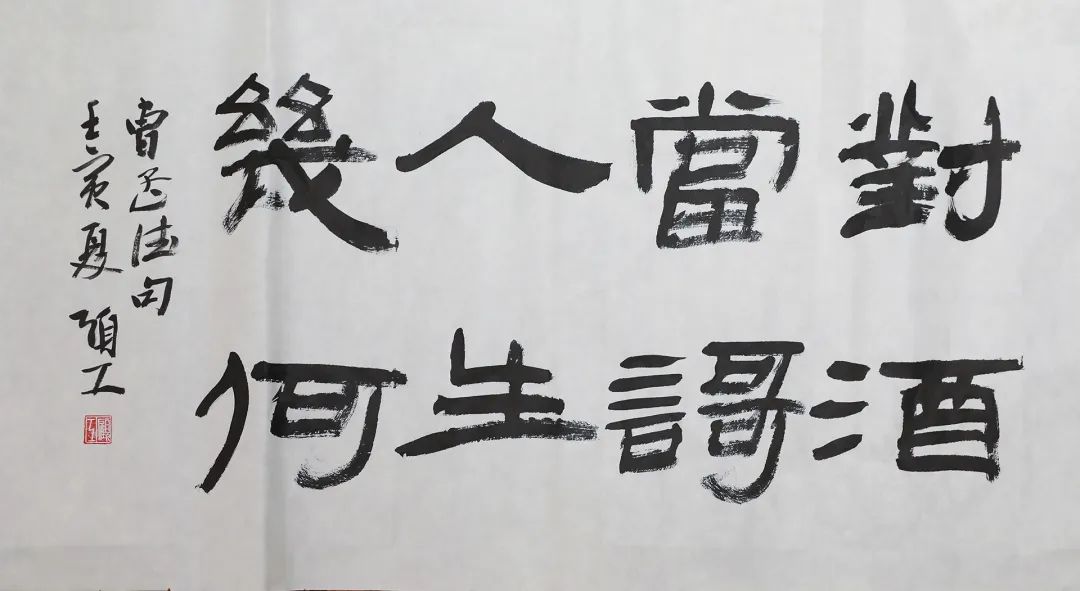 對酒
當謌
人生
幾何
曹孟德句
壬寅夏 顧工